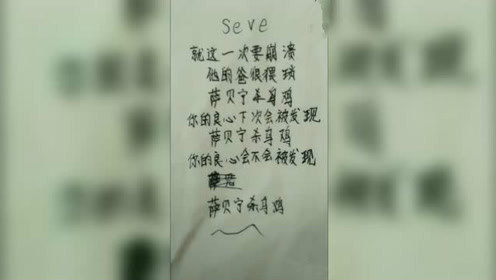 seve
就这一次要崩溃
他的爸很猥琐
萨贝宁杀乌鸡
你的良心下次会被发现
萨贝宁杀乌鸡
你的良心会不会被发现
萨贝宁杀乌鸡